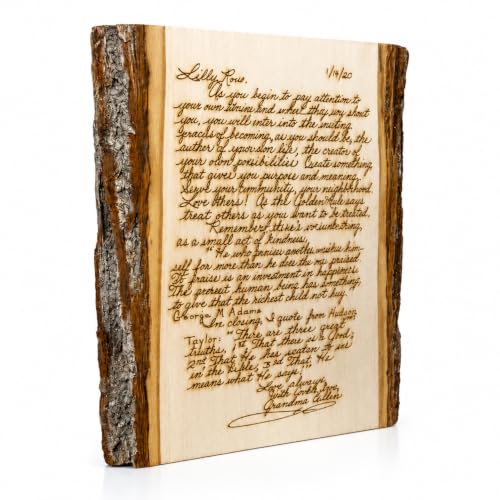 Lilly Rose, 1/19/20
As you begin to pay attention to
your own and what they say about
you, you will enter into the
of becoming, as you should be, the
author of your own life, the creator of
your own possibilities. Create something
that gives you purpose and meaning.
Serve your community, your neighborhood.
Love others! As the Golden Rule says
treat others as you want to be treated.
Remember!
as a small act of kindness.
"He who praises another
self for more than he does the praised.
praise is an investment in happiness.
The poorest human being has something
to give that the richest child not buy."
George M Adams
In closing, I quote from Hudson
Taylor: "There are three great
truths, 1st That there is a God;
2nd That He has to us
in the Bible; 3rd That He
means what He says!"
Love always,
with love,
Grandma